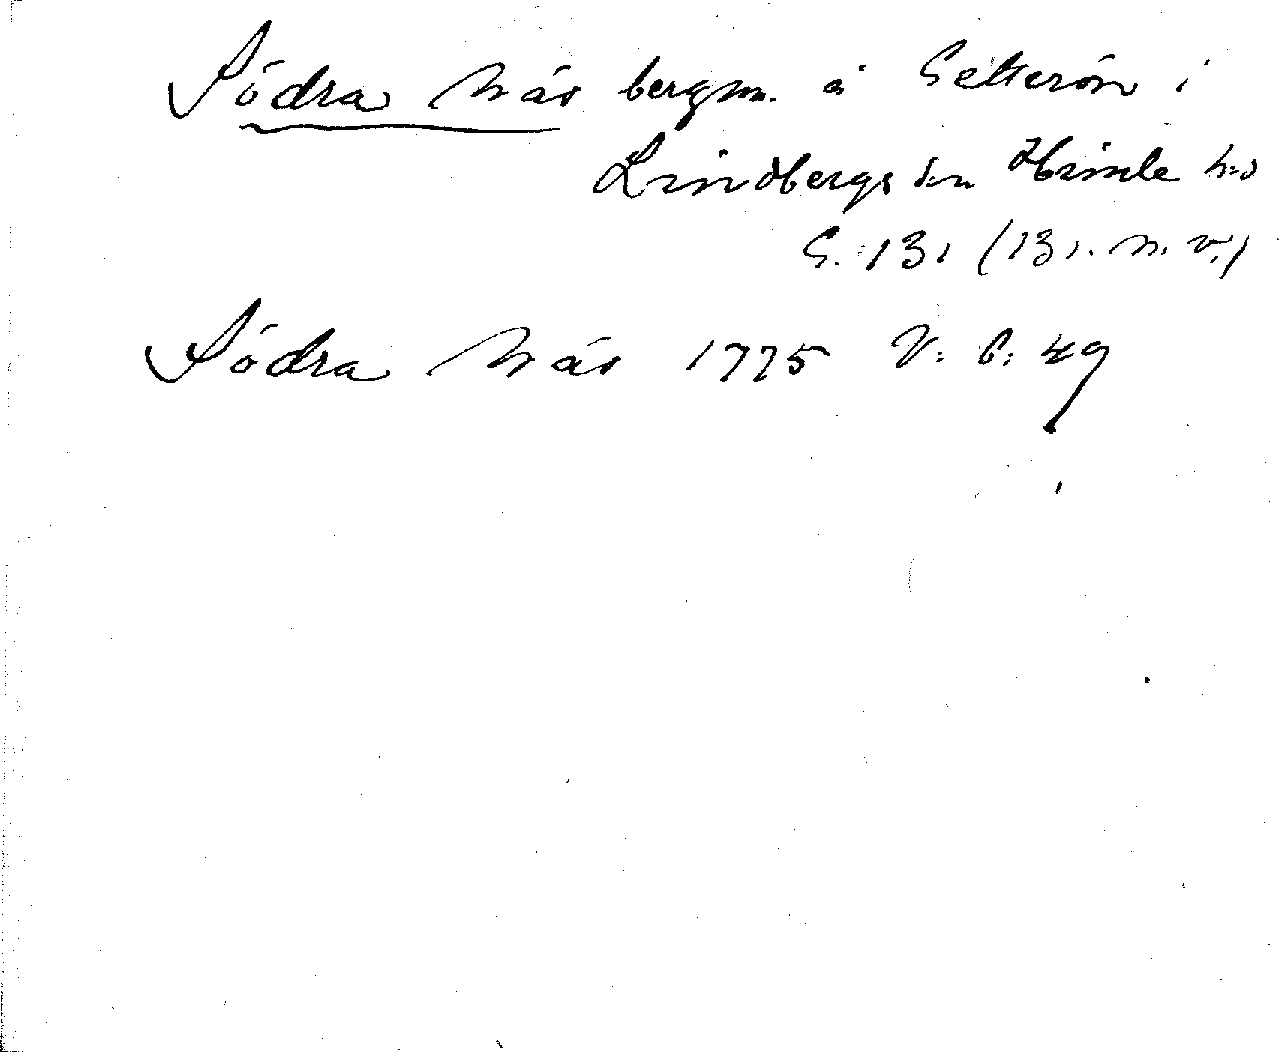 Södra Näs bergm. å Getterön i
Lindbergs sn Himle hd
G. 131 (131. n. v.)
Södra Näs 1775 V: b: 49